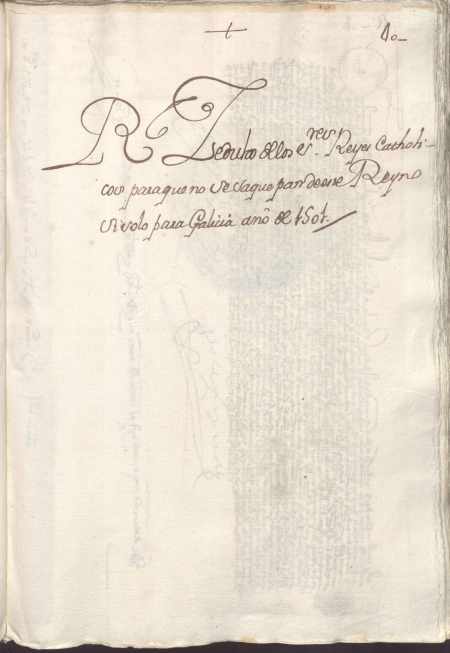 + 10
Rl Zedula de los Sres. Reyes Catholi-
cos para que no se saque pan de este Reyno
si solo para Galicia año de 1501.